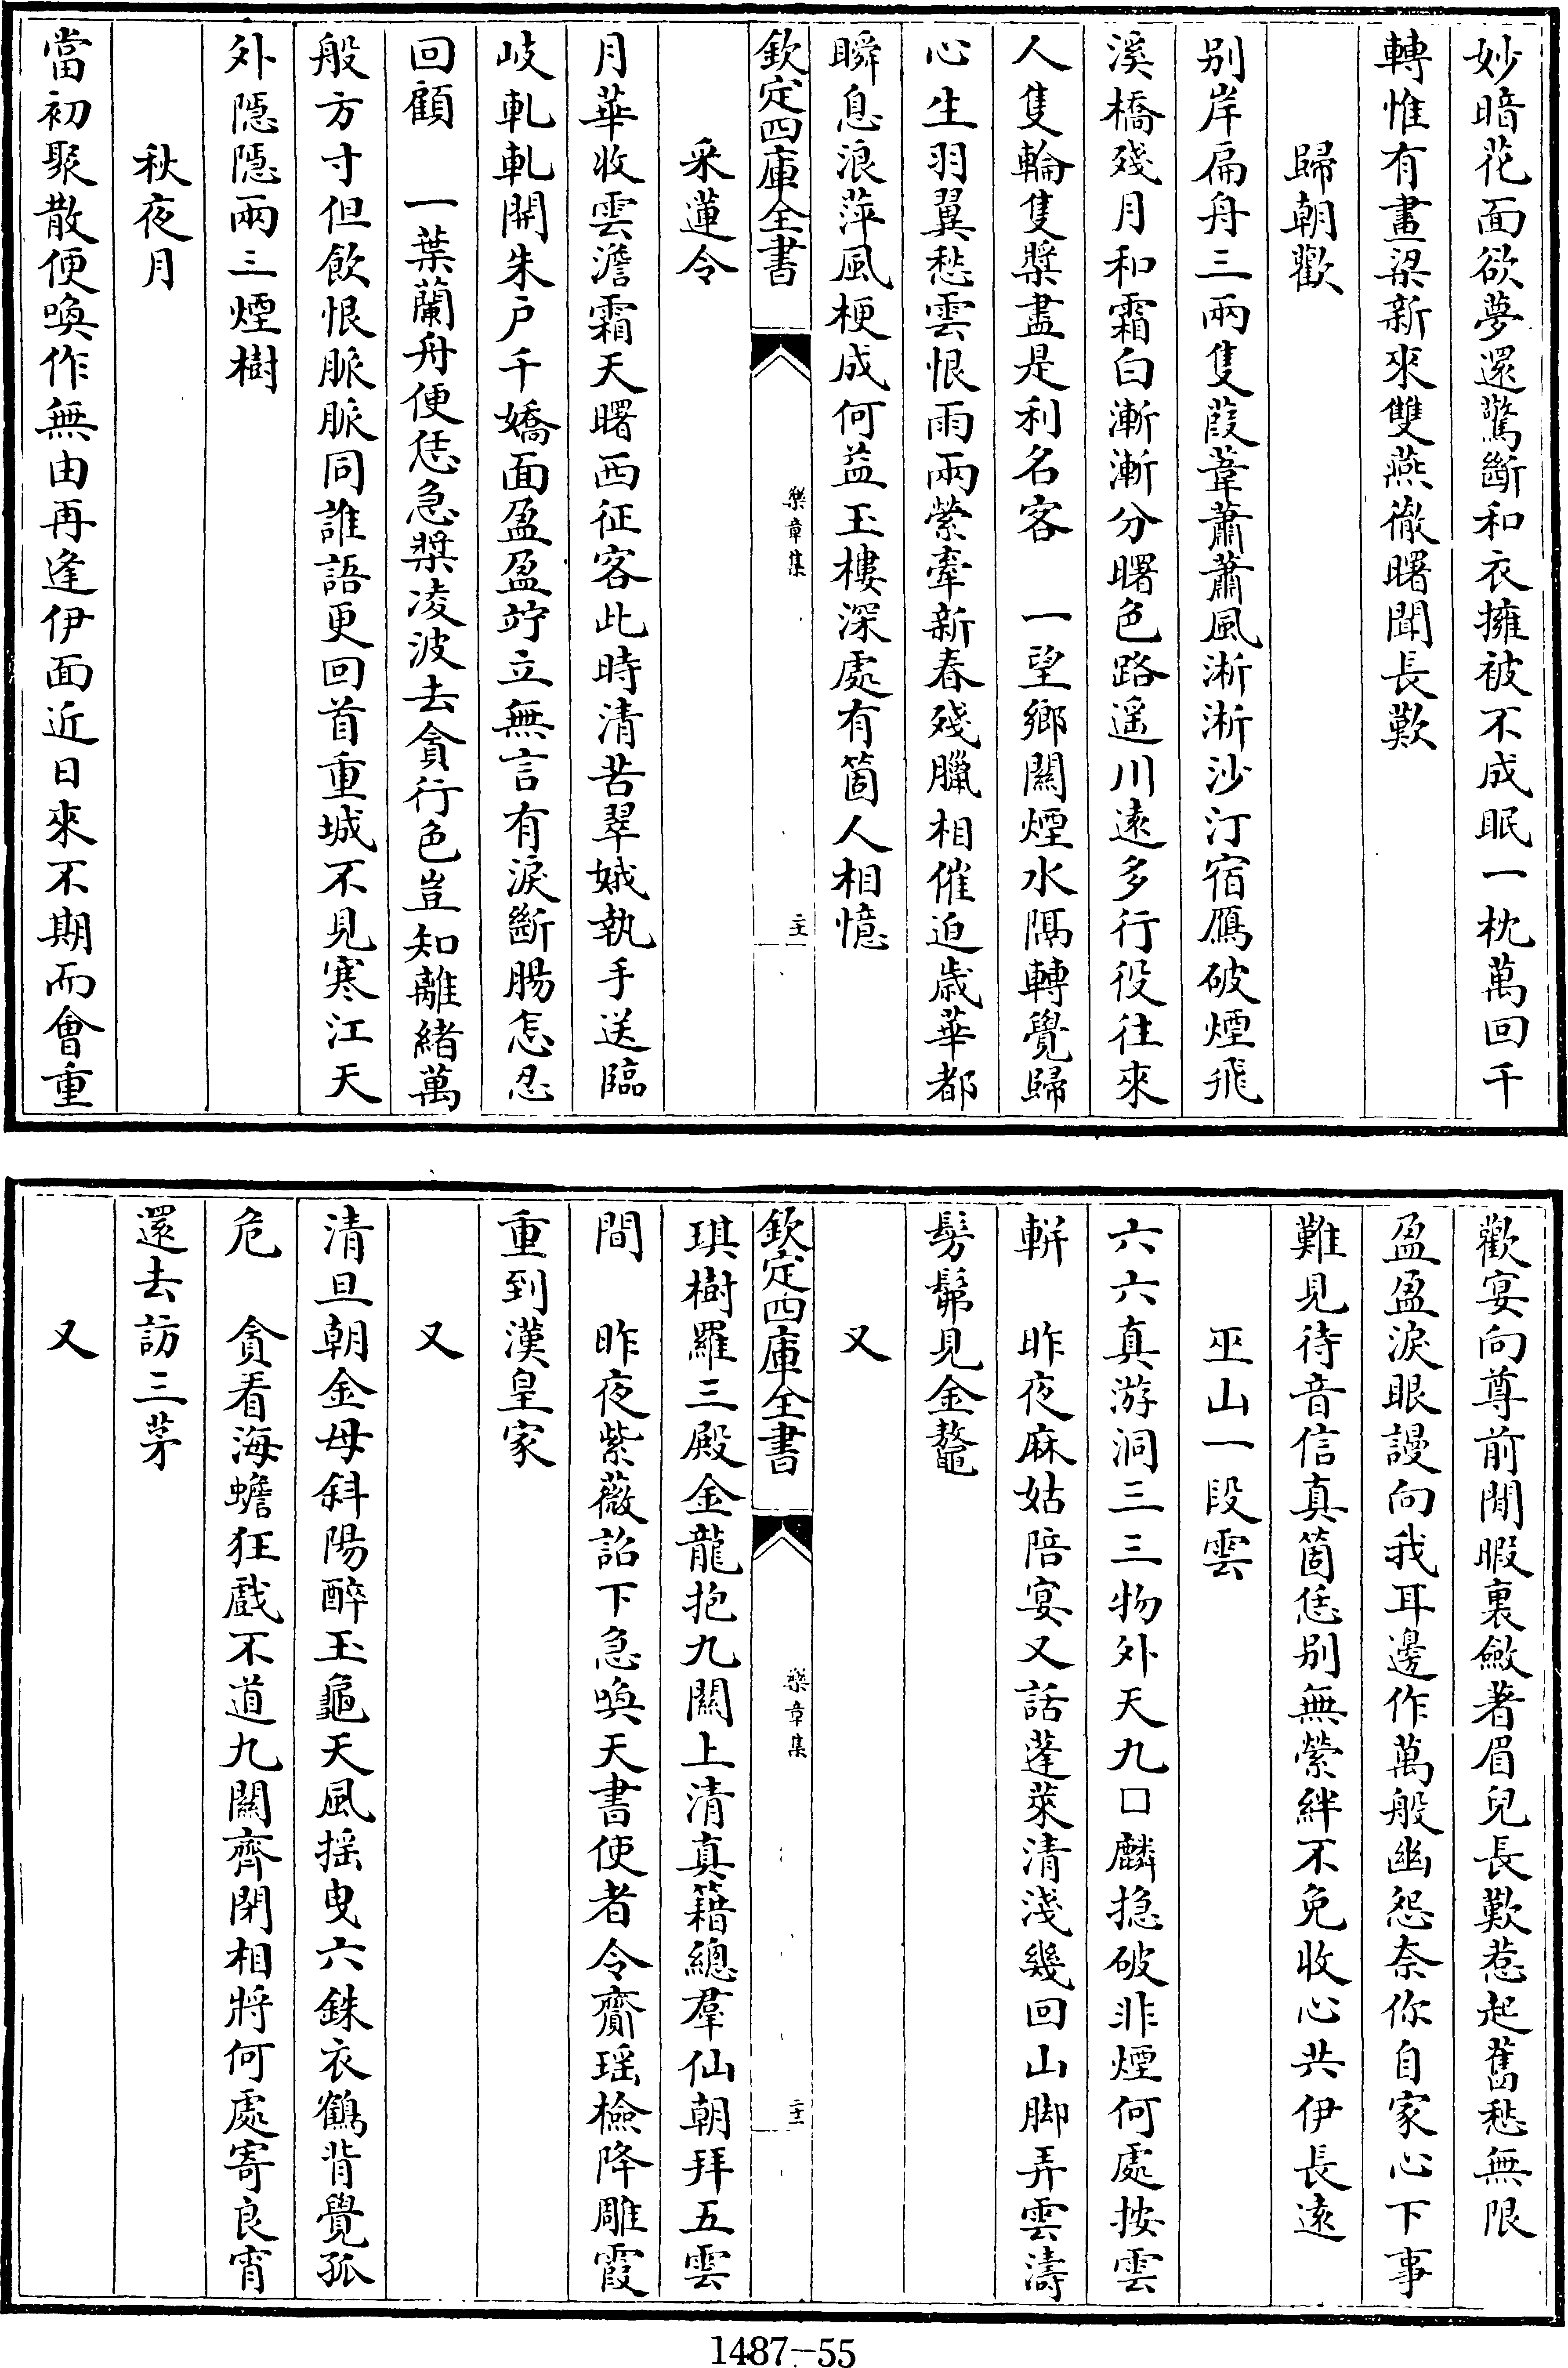 妙暗花面欲夢還驚斷和衣擁被不成眠一枕萬回千
轉惟有畫梁新來雙燕徹曙聞長歎
歸朝歡
别岸扁舟三兩隻葭葦蕭蕭風淅淅沙汀宿鴈破煙飛
溪橋殘月和霜白漸漸分曙色路遥川遠多行役往來
人隻輪隻槳盡是利名客　一望鄉關煙水隔轉覺歸
心生羽翼愁雲恨雨兩縈牽新春殘臘相催迫歲華都
瞬息浪萍風梗成何益玉樓深處有箇人相憶
欽定四庫全書
樂章集
二十
采蓮令
月華收雲澹霜天曙西征客此時清苦翠娥執手送臨
岐軋軋開朱户千嬌面盈盈竚立無言有淚斷腸怎忍
回顧　一葉蘭舟便恁急槳凌波去貪行色豈知離緒萬
般方寸但飲恨脈脈同誰語更回首重城不見寒江天
外隱隱兩三煙樹
秋夜月
當初聚散便喚作無由再逢伊面近日來不期而會重
歡宴向尊前閒暇裏斂著眉兒長歎惹起舊愁無限
盈盈淚眼謾向我耳邊作萬般幽怨奈你自家心下事
難見待音信真箇恁别無縈絆不免收心共伊長遠
巫山一段雲
六六真游洞三三物外天九口麟摠破非煙何處按雲
軿　昨夜麻姑陪宴又話蓬萊清淺幾回山脚弄雲濤
髣髴見金鼇
又
欽定四庫全書
樂章集
二十一
琪樹羅三殿金龍抱九關上清真籍總羣仙朝拜五雲
間　昨夜紫薇詔下急喚天書使者令齎瑶檢降雕霞
重到漢皇家
又
清旦朝金母斜陽醉玉龜天風摇曳六銖衣鶴背覺孤
危　貪看海蟾狂戲不道九關齊閉相將何處寄良宵
還去訪三茅
又
1487-55